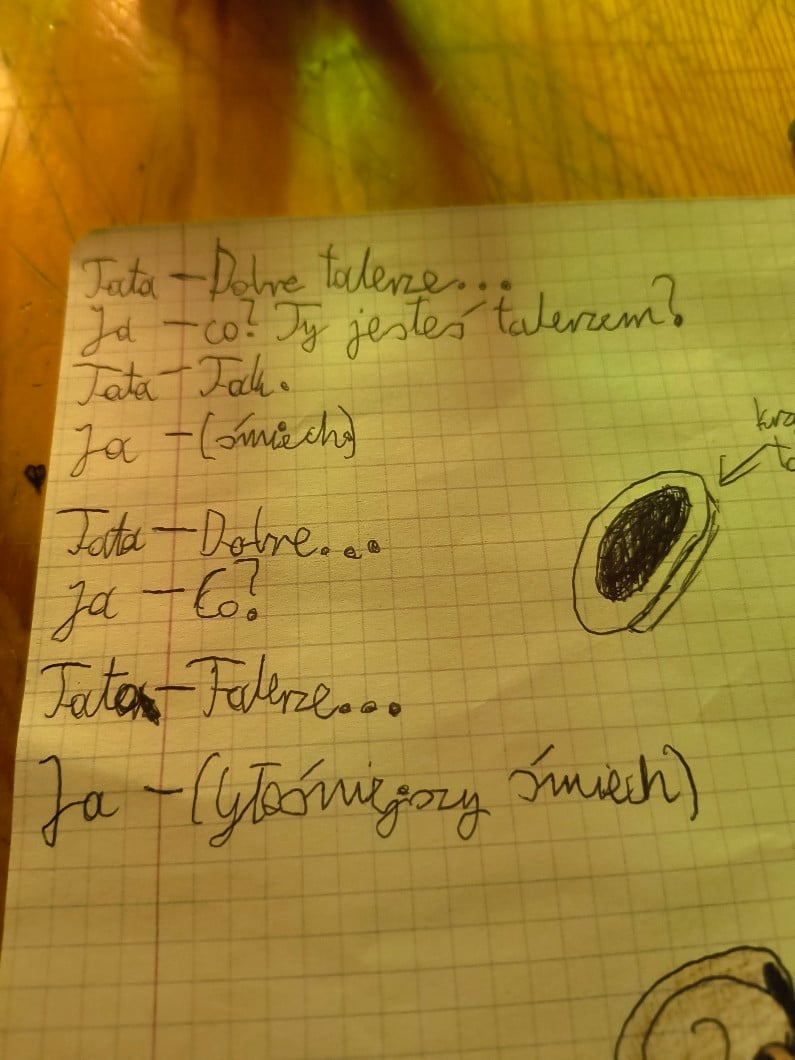 Tata - Dobre talerze...
Ja - co? Ty jesteś talerzem?
Tata - Tak.
Ja - (śmiech)
Tata - Dobre...
Ja - Co?
Tata - Talerze...
Ja - (głośniejszy śmiech)